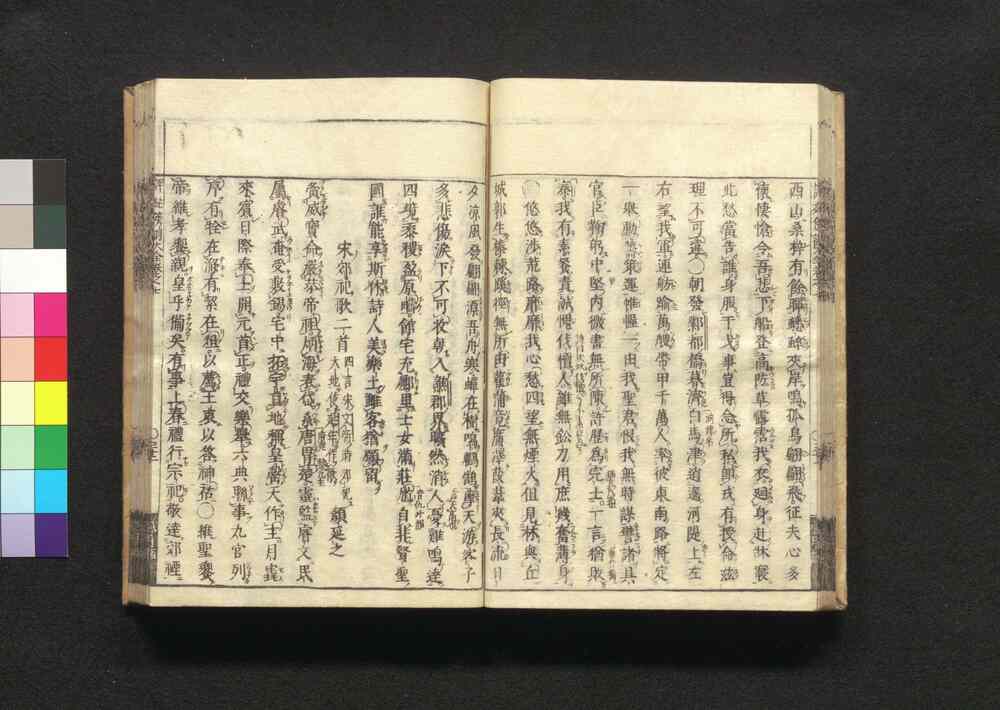 西山桑梓有餘暉蟋蟀夾岸鳴孤鳥翩翩飛征夫心多
懷悽愴令吾悲下船登高防草露霑我衣迴身赴牀寢
此愁當告誰身服干戈事豈得念所私即戎有授命茲
理不可違〇朝發鄴都橋暮濟白馬津逍遙河隄上左
右望我軍連舫踰萬艘帶甲千萬人率彼東南路將定
一舉勳籌策運帷幄一由我聖君恨我無時謀譬諸具
官臣鞠躬中堅內微畫無所陳許歷為完士一言猶敗
秦我有素餐責誠愧伐檀人雖無鉛刀用庶幾奮薄身
〇悠悠涉荒路靡靡我心愁四望無煙火但見林與丘
城郭生榛棘蹊徑無所由雚蒲竟廣澤葭葦夾長流日
夕涼風發翩翩漂吾舟寒蟬在樹鳴鸛鵠摩天游客子
多悲傷淚下不可收朝入譙郡界曠然消人憂雞鳴達
四境黍稷盈原疇館宅充廛里士女滿莊馗自非賢聖
國誰能享斯休詩人美樂土雖客猶願留
宋郊祀歌二首 顏延之
夤威寶命嚴恭帝祖炳海表岱系唐冑楚靈監叡文民
屬叡武奄受敷錫宅中拓宇亘地稱皇罄天作主月竁
來賓日際奉土開元首正禮交樂舉六典聯事九官列
序有牷在滌有絜在俎以薦王衷以答神祜〇維聖饗
帝維孝饗親皇乎備矣有事上春禮行宗祀敬達郊禋